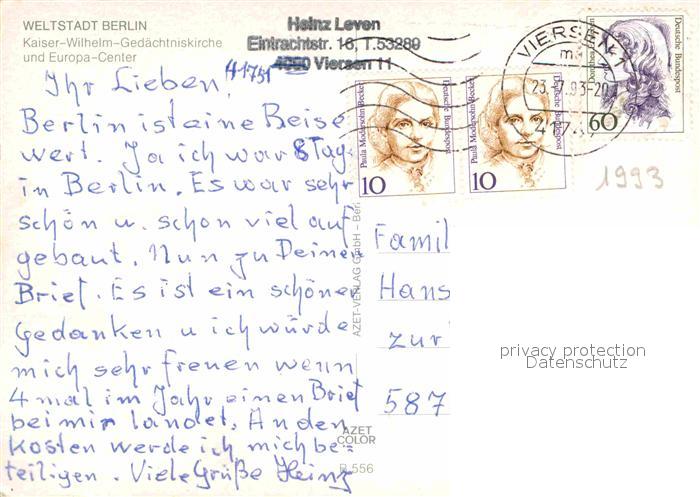 WELTSTADT BERLIN
Kaiser-Wilhelm-Gedächtniskirche
und Europa-Center
Heinz Leven
Eintrachtstr. 16, T.53289
4060 Viersen 11
41751
Ihr Lieben!
Berlin ist eine Reise
wert. Ja ich war 8 Tag.
in Berlin. Es war sehr
schön u. schon viel auf
gebaut. Nun zu Deinen
Brief. Es ist ein schöner
Gedanken u ich würde
mich sehr freuen wenn
4 mal im Jahr einen Brief
bei mir landet. An den
Kosten werde ich mich be=
teiligen. Viele Grüße Heinz
AZET-VERLAG GmbH - Berl
AZET
COLOR
B 556
Paula Modersohn-Becker
Deutsche Bundespost
10
Paula Modersohn-Becker
Deutsche Bundespost
10
Deutsche Bundespost
60
VIERSEN 1
23. 93-20
417
1993
Famil
Hans
zur
587
privacy protection
Datenschutz